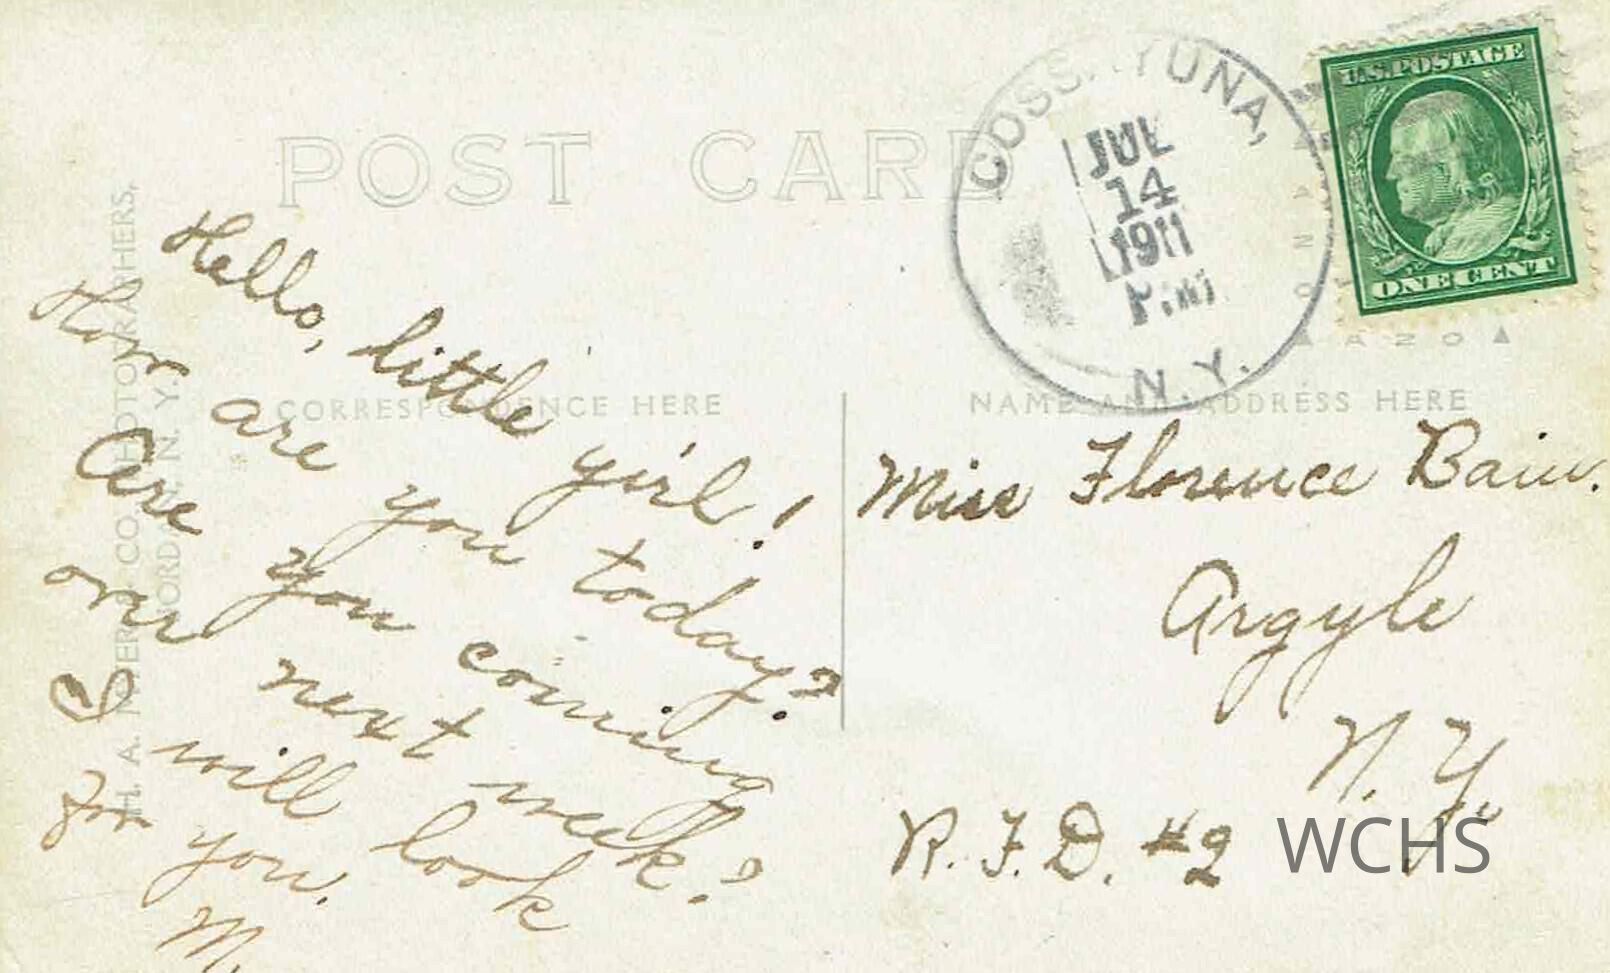 POST CARD
COSSAYUNA,
JUL
14
1911
P.M.
N.Y.
U.S. POSTAGE
ONE CENT
AZO
CORRESPONDENCE HERE
NAME AND ADDRESS HERE
Hello, little girl!
How are you today?
Are you coming
over next week?
I will look
for you.
M.
Miss Florence Bain.
Argyle
N.Y.
R.F.D. #2
H. A. CO. PHOTOGRAPHERS,
N. Y.
WCHS